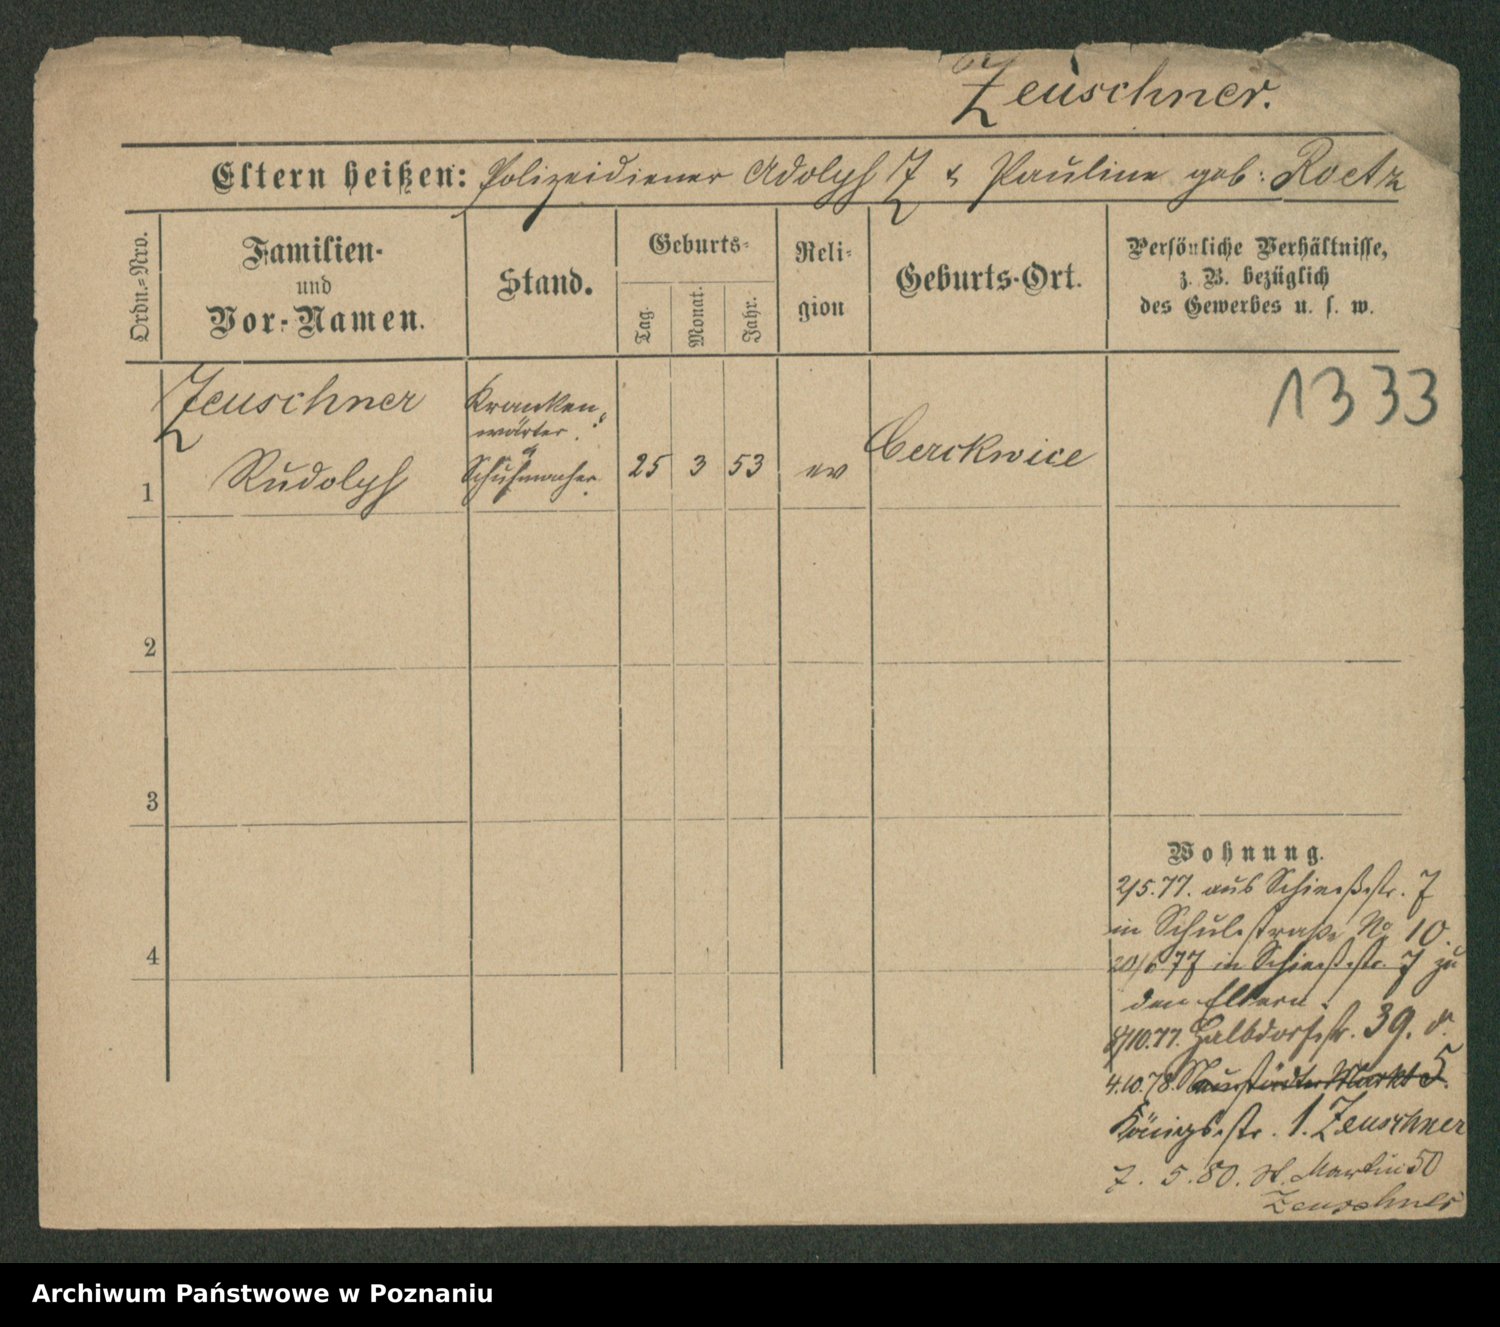 Zeuschner.
Eltern heißen: Polizeidiener Adolph Z & Pauline geb: Roetz
Ordn.=Nro.
Familien-
und
Vor-Namen.
Stand.
Geburts-
Tag.
Monat.
Jahr.
Reli-
gion
Geburts-Ort.
Persönliche Verhältnisse,
z. B. bezüglich
des Gewerbes u. s. w.
1333
1
Zeuschner
Rudolph
Kranken
wärter.
Schuhmacher.
25
3
53
ev
Cerekwice
2
3
4
Wohnung.
2/5.77. aus Schießstr. 7
in Schulstraße No 10.
20/6 77 in Schießstr. 7 zu
den Eltern.
8/10.77. Halbdorfstr. 39.
4.10.78. Neustädter Markt 5.
Königsstr. 1. Zeuschner
7. 5. 80. St. Martin 50
Zeuschner
Archiwum Państwowe w Poznaniu